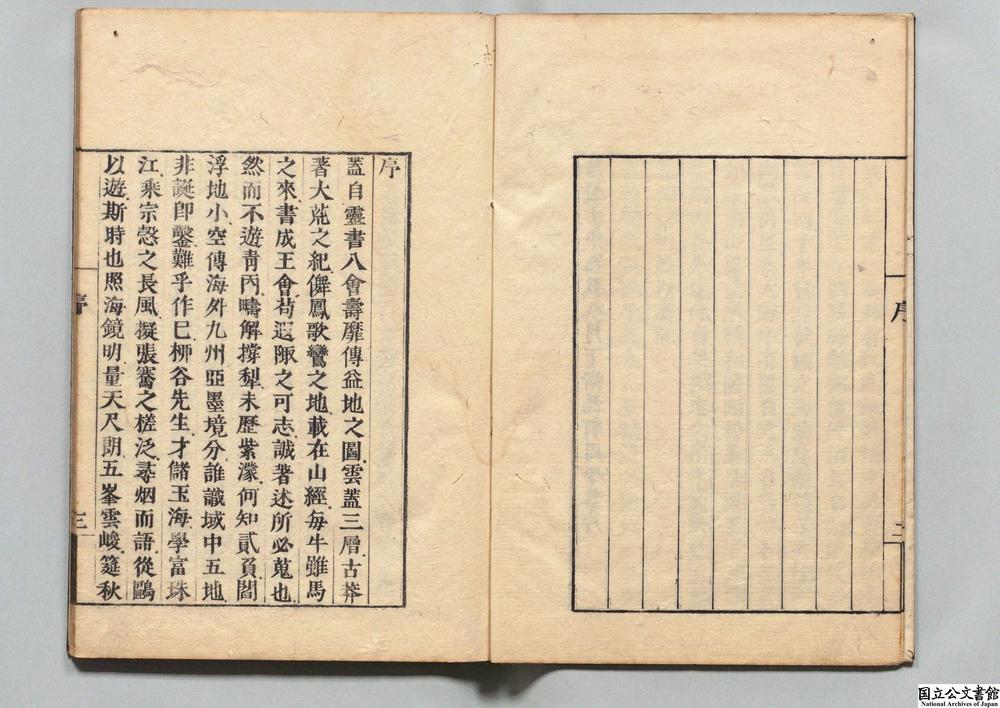 序
二
序
蓋自靈書八會壽靡傳益地之圖雲蓋三層古莽
著大荒之紀儛鳳歌鸞之地載在山經毎牛雖馬
之來書成王會苟遐陬之可志誠著述所必蒐也
然而不遊青丙疇解撐犁未歷紫濛何知貳負閻
浮地小空傳海外九州亞墨境分誰識域中五地
非誕卽鑿難乎作已栁谷先生才儲玉海學富珠
江乘宗慤之長風擬張騫之槎泛尋烟而語從鷗
以遊斯時也照海鏡明量天尺朗五峯雲峻筵秋
序
三
国立公文書館
National Archives of Japan